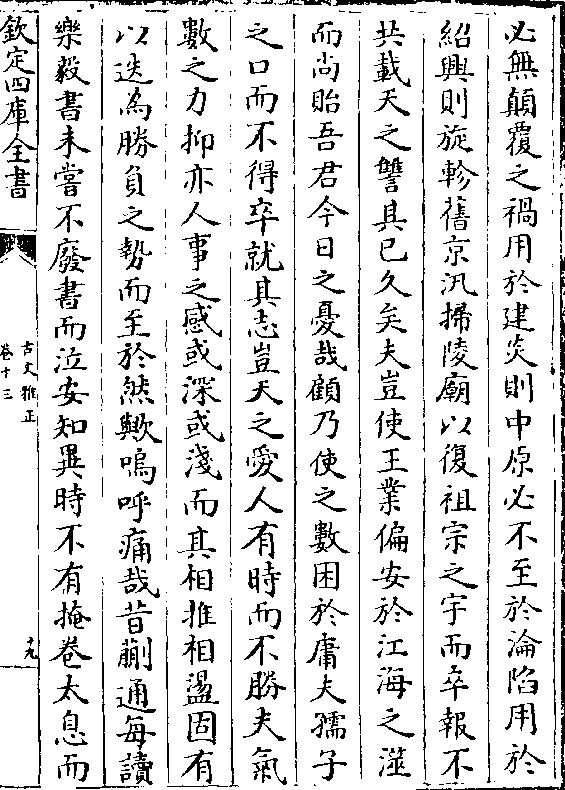 必無顛覆之禍用於建炎則中原必不至於淪陷用於
紹興則旋軫舊京汛掃陵廟以復祖宗之宇而卒報不
共載天之讐其已久矣夫豈使王業偏安於江海之澨
而尚貽吾君今日之憂哉顧乃使之數困於庸夫孺子
之口而不得卒就其志豈天之愛人有時而不勝夫氣
數之力抑亦人事之感或深或淺而其相推相盪固有
以迭為勝負之勢而至於然歟嗚呼痛哉昔蒯通每讀
樂毅書未嘗不廢書而泣安知異時不有掩卷太息而
欽定四庫全書
古文雅正
卷十三
十九